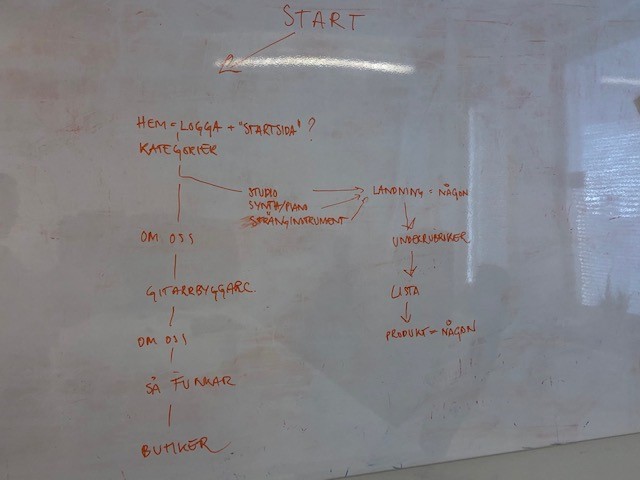 START
HEM = LOGGA + "STARTSIDA" ?
KATEGORIER
STUDIO
SYNTH/PIANO
STRÄNGINSTRUMENT
LANDNING = NÅGON
UNDERRUBRIKER
LISTA
PRODUKT = NÅGON
OM OSS
GITARRBYGGARE
OM OSS
SÅ FUNKAR
BUTIKER